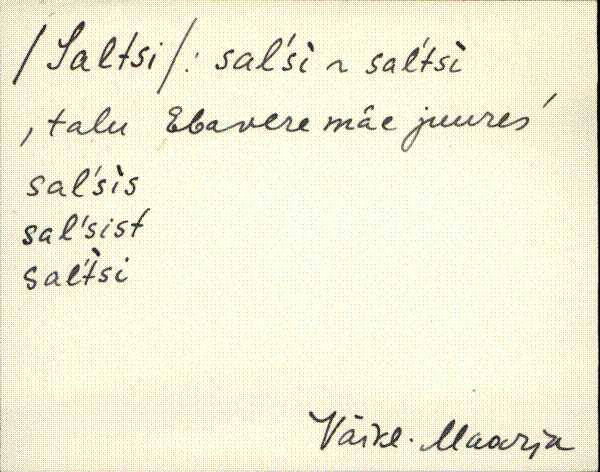 /Saltsi/: sal'sì ~ sal'tsì
, talu Ebavere mäe juures'
sal'sìs
sal'sist
sal't̀si
Väike-Maarja